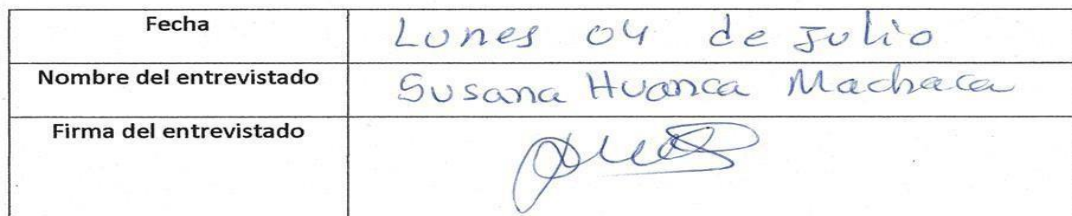 Fecha Lunes 04 de Julio
Nombre del entrevistado Susana Huanca Machaca
Firma del entrevistado